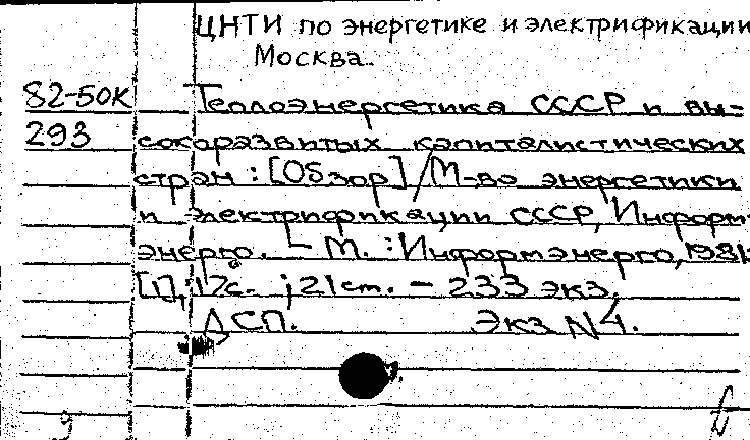 ЦНТИ по энергетике и электрификации
Москва.
82-50К Теплоэнергетика СССР и вы-
293 сокоразвитых капиталистических
стран : [Обзор] / М-во энергетики
и электрификации СССР, Информ-
энерго. – М. : Информэнерго, 1981.
[1], 17с. ; 21 cm. – 233 экз.
ДСП. Экз N4.